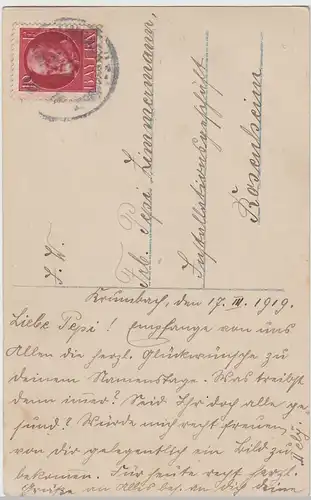 BAYERN
10
S. W.
Frl. Pepi Zimmermann,
Installationsgeschäft
Rosenheim
Krumbach, den 17. III. 1919.
Liebe Pepi! Empfange von uns
Allen die herzl. Glückwünsche zu
deinem Namenstage. Was treibst
denn immer? Seid Ihr doch alle ge-
sund? Würde mich recht freuen,
von dir gelegentlich ein Bild zu
bekommen. Für heute recht herzl.
Grüße an Alles bes. an dich deine